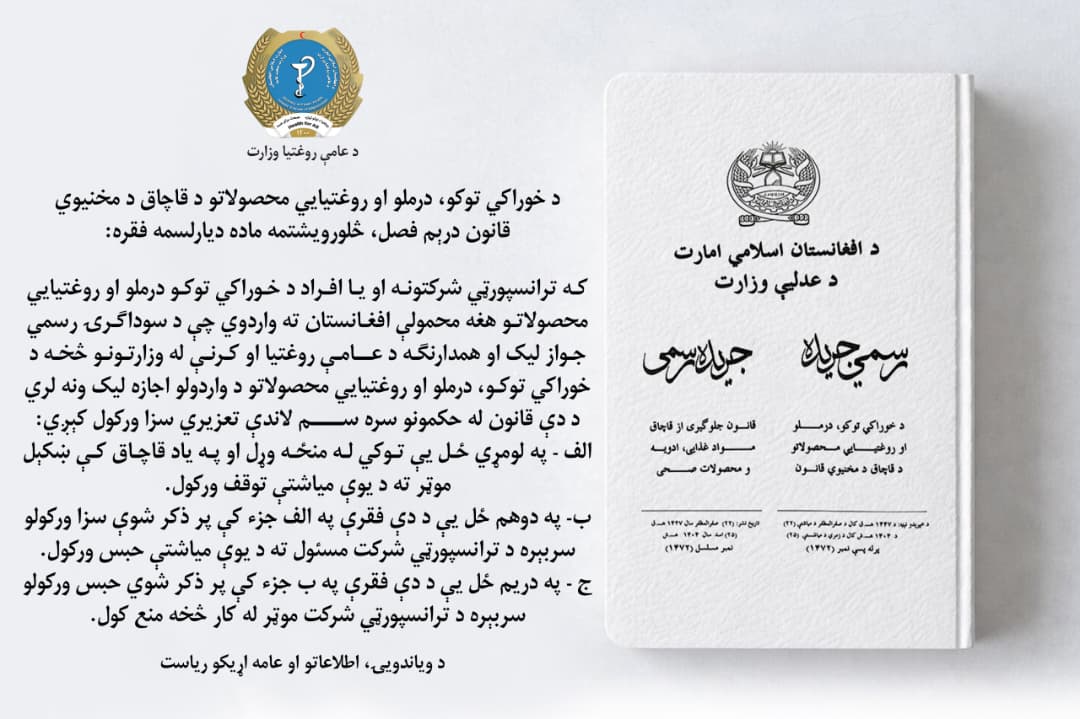 Health for All
١٤٠٠
د عامې روغتیا وزارت
د خوراکي توکو، درملو او روغتیایي محصولاتو د قاچاق د مخنیوي
قانون درېم فصل، څلورویشتمه ماده دیارلسمه فقره:
کـه ترانسپورټي شرکتونـه او یـا افـراد د خـوراکي توکـو درملو او روغتیایي
محصولاتـو هغه محمولې افغـانستان ته واردوي چې د سوداگـرۍ رسمي
جواز لیک او همدارنگـه د عـــامـې روغتیا او کـرنـې له وزارتـونـو څخـه د
خوراکي توکـو، درملو او روغتیایي محصولاتو د واردولو اجازه لیک ونه لري
د دې قانون له حکمونو سره ســـــم لاندې تعزیري سزا ورکول کېږي:
الف - په لومړي ځـل یې تـوکي لـه منځـه وړل او پـه یاد قاچـاق کـې ښکېل
موټر ته د یوې میاشتې توقف ورکول.
ب- په دوهم ځل یې د دې فقرې په الف جزء کې پر ذکر شوې سزا ورکولو
سربېره د ترانسپورټي شرکت مسئول ته د یوې میاشتې حبس ورکول.
ج - په دریم ځل یې د دې فقرې په ب جزء کې پر ذکر شوي حبس ورکولو
سربېره د ترانسپورټي شرکت موټر له کار څخه منع کول.
د ویاندویۍ، اطلاعاتو او عامه اړیکو ریاست
د افغانستان اسلامي امارت
د عدلیې وزارت
رسمي جریده
جریده رسمی
د خوراکي توکو، درمـلـو
او روغتیـــایي محصولاتو
د قاچاق د مخنیوي قانون
قانون جلوگیری از قاچاق
مــواد غذایی، ادویـه
و محصولات صحی
د خپرېدو نېټه: د ١٤٤٧ هـ.ق کال د صفرالمظفر د میاشتې (٢٢)
د ١٤٠٤ هـ.ش کال د زمري د میاشتې (٢٥)
پرله پسې نمبر (١٤٧٢)
تاریخ نشر: (٢٢) صفرالمظفر سال ١٤٤٧ هـ.ق
(٢٥) اسد سال ١٤٠٤ هـ.ش
نمبر مسلسل (١٤٧٢)